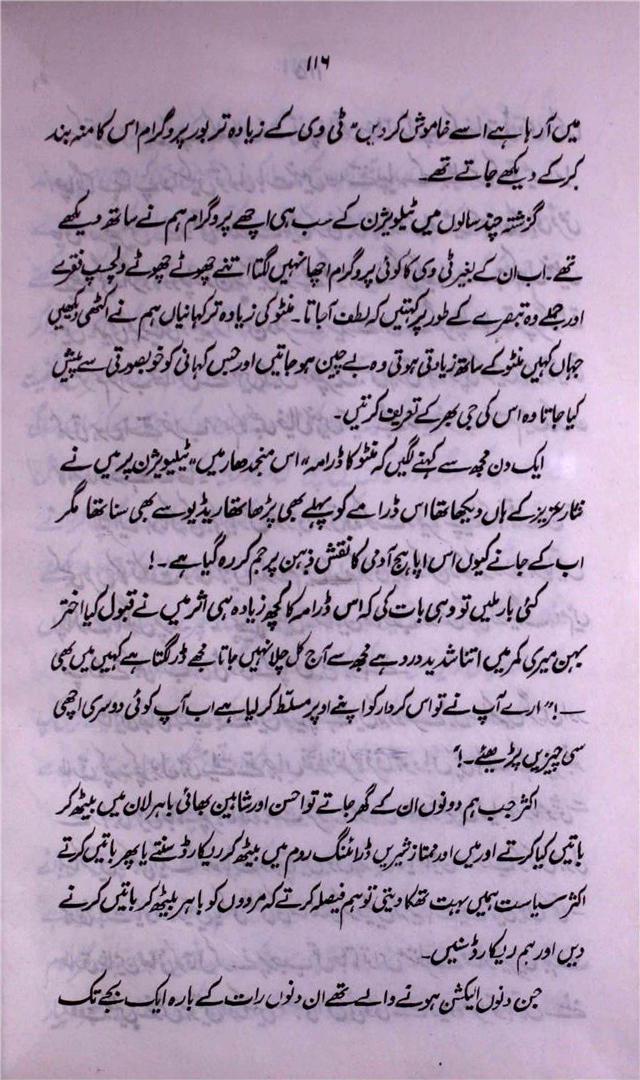 ۱۱۶
میں آ رہا ہے اسے خاموش کر دیں" ٹی وی کے زیادہ تر بور پروگرام اس کا منہ بند
کر کے دیکھے جاتے تھے۔
گزشتہ چند سالوں میں ٹیلیویژن کے سب ہی اچھے پروگرام ہم نے ساتھ دیکھے
تھے۔ اب ان کے بغیر ٹی وی کا کوئی پروگرام اچھا نہیں لگتا اتنے چھوٹے چھوٹے دلچسپ فقرے
اور جملے وہ تبصرے کے طور پر کہتیں کہ لطف آجاتا۔ منٹو کی زیادہ تر کہانیاں ہم نے اکٹھی دیکھیں
جہاں کہیں منٹو کے ساتھ زیادتی ہوتی وہ بے چین ہو جاتیں اور جس کہانی کو خوبصورتی سے پیش
کیا جاتا وہ اس کی جی بھر کے تعریف کرتیں۔
ایک دن مجھ سے کہنے لگیں کہ منٹو کا ڈرامہ "اس منجدھار میں" ٹیلیویژن پر میں نے
نثار عزیز کے ہاں دیکھا تھا اس ڈرامے کو پہلے بھی پڑھا تھا ریڈیو سے بھی سنا تھا مگر
اب کے جانے کیوں اس اپاہج آدمی کا نقش ذہن پر جم کر رہ گیا ہے۔!
کئی بار ملیں تو وہی بات کی کہ اس ڈرامہ کا کچھ زیادہ ہی اثر میں نے قبول کیا اختر
بہن میری کمر میں اتنا شدید درد ہے مجھ سے آج کل چلا نہیں جاتا مجھے ڈر لگتا ہے کہیں میں بھی
۔۔! "ارے آپ نے تو اس کردار کو اپنے اوپر مسلّط کر لیا ہے اب آپ کوئی دوسری اچھی
سی چیزیں پڑھیئے۔!"
اکثر جب ہم دونوں ان کے گھر جاتے تو احسن اور شاہین بھائی باہر لان میں بیٹھ کر
باتیں کیا کرتے اور میں اور ممتاز شیریں ڈرائنگ روم میں بیٹھ کر ریکارڈ سنتے یا پھر باتیں کرتے
اکثر سیاست ہمیں بہت تھکا دیتی تو ہم فیصلہ کرتے کہ مردوں کو باہر بیٹھ کر باتیں کرنے
دیں اور ہم ریکارڈ سنیں۔
جن دنوں الیکشن ہونے والے تھے ان دنوں رات کے بارہ ایک بجے تک